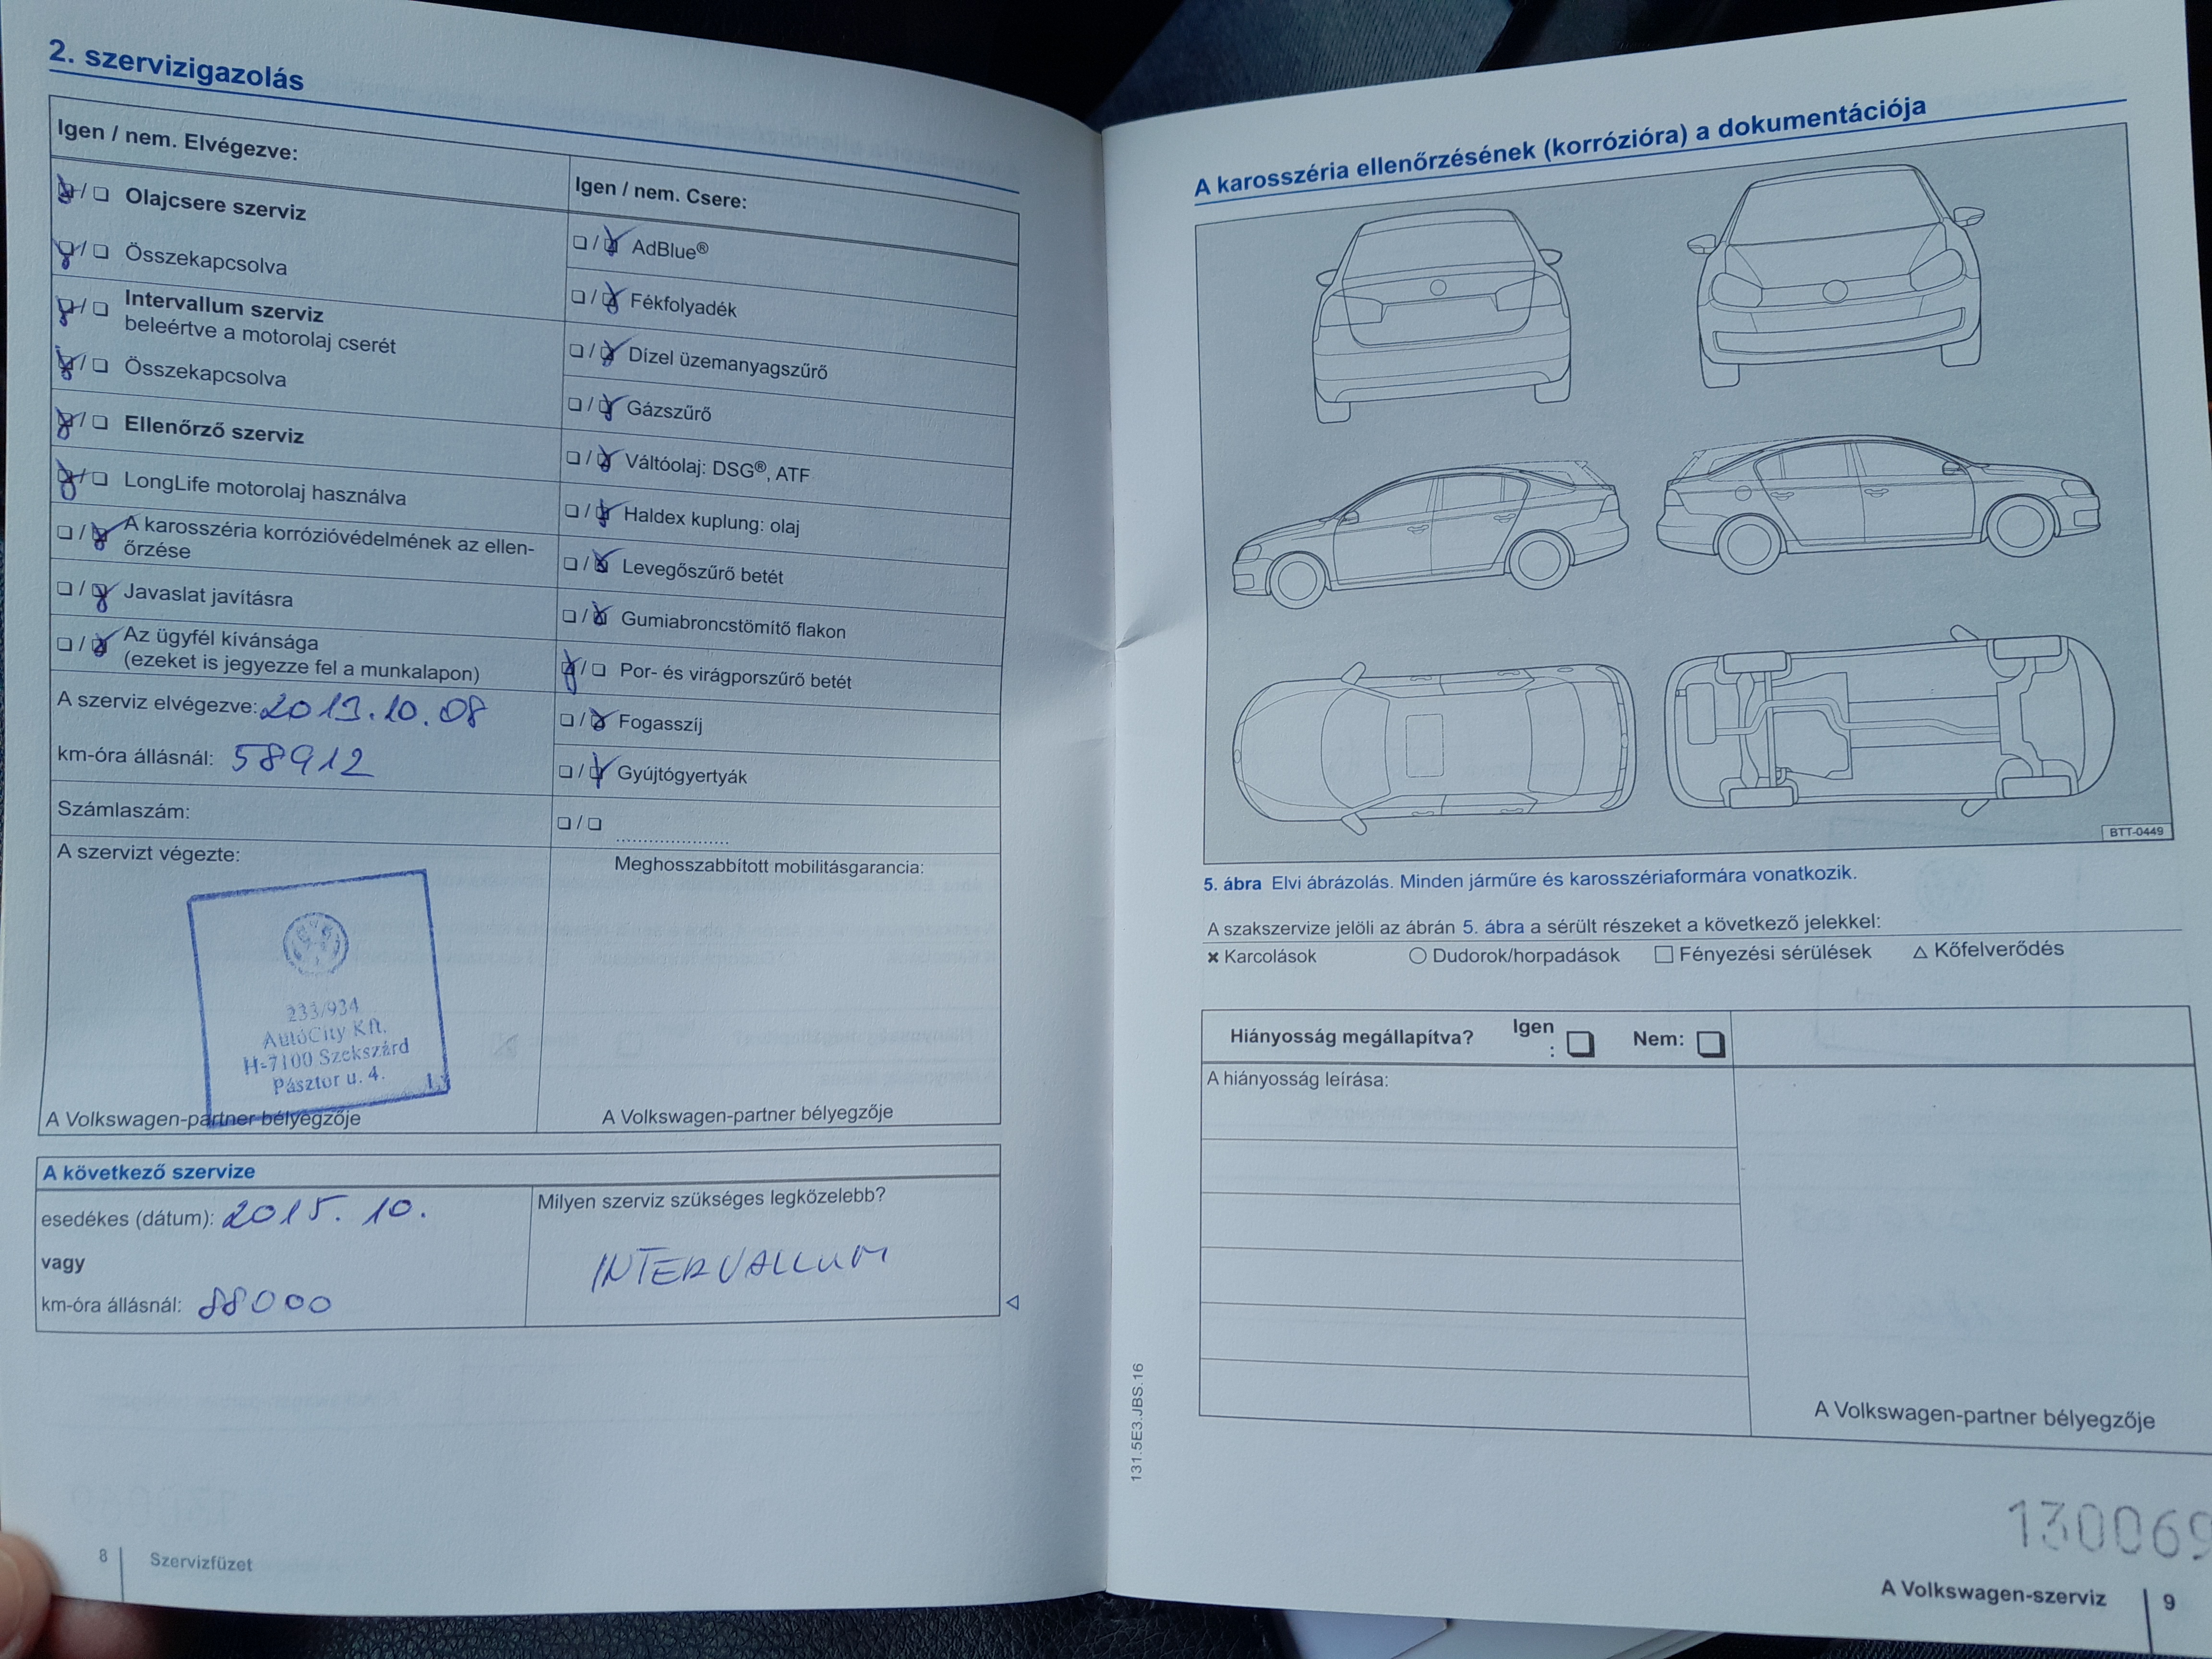 2. szervizigazolás
Igen / nem. Elvégezve:
❏ / ❏ Olajcsere szerviz
❏ / ❏ Összekapcsolva
❏ / ❏ Intervallum szerviz
beleértve a motorolaj cserét
❏ / ❏ Összekapcsolva
❏ / ❏ Ellenőrző szerviz
❏ / ❏ LongLife motorolaj használva
❏ / ❏ A karosszéria korrózióvédelmének az ellen-
őrzése
❏ / ❏ Javaslat javításra
❏ / ❏ Az ügyfél kívánsága
(ezeket is jegyezze fel a munkalapon)
A szerviz elvégezve: 2013.10.08
km-óra állásnál: 58912
Számlaszám:
A szervizt végezte:
233/934
AutóCity Kft.
H-7100 Szekszárd
Pásztor u. 4.
A Volkswagen-partner bélyegzője
Igen / nem. Csere:
❏ / ❏ AdBlue®
❏ / ❏ Fékfolyadék
❏ / ❏ Dízel üzemanyagszűrő
❏ / ❏ Gázszűrő
❏ / ❏ Váltóolaj: DSG®, ATF
❏ / ❏ Haldex kuplung: olaj
❏ / ❏ Levegőszűrő betét
❏ / ❏ Gumiabroncstömítő flakon
❏ / ❏ Por- és virágporszűrő betét
❏ / ❏ Fogasszíj
❏ / ❏ Gyújtógyertyák
❏ / ❏ .....................
Meghosszabbított mobilitásgarancia:
A Volkswagen-partner bélyegzője
A következő szervize
esedékes (dátum): 2015. 10.
vagy
km-óra állásnál: 88000
Milyen szerviz szükséges legközelebb?
INTERVALLUM
8 Szervizfüzet
A karosszéria ellenőrzésének (korrózióra) a dokumentációja
BTT-0449
5. ábra Elvi ábrázolás. Minden járműre és karosszériaformára vonatkozik.
A szakszervize jelöli az ábrán 5. ábra a sérült részeket a következő jelekkel:
✖ Karcolások ○ Dudorok/horpadások □ Fényezési sérülések △ Kőfelverődés
Hiányosság megállapítva? Igen : ❏ Nem: ❏
A hiányosság leírása:
A Volkswagen-partner bélyegzője
131.5E3.JBS.16
130069
A Volkswagen-szerviz 9